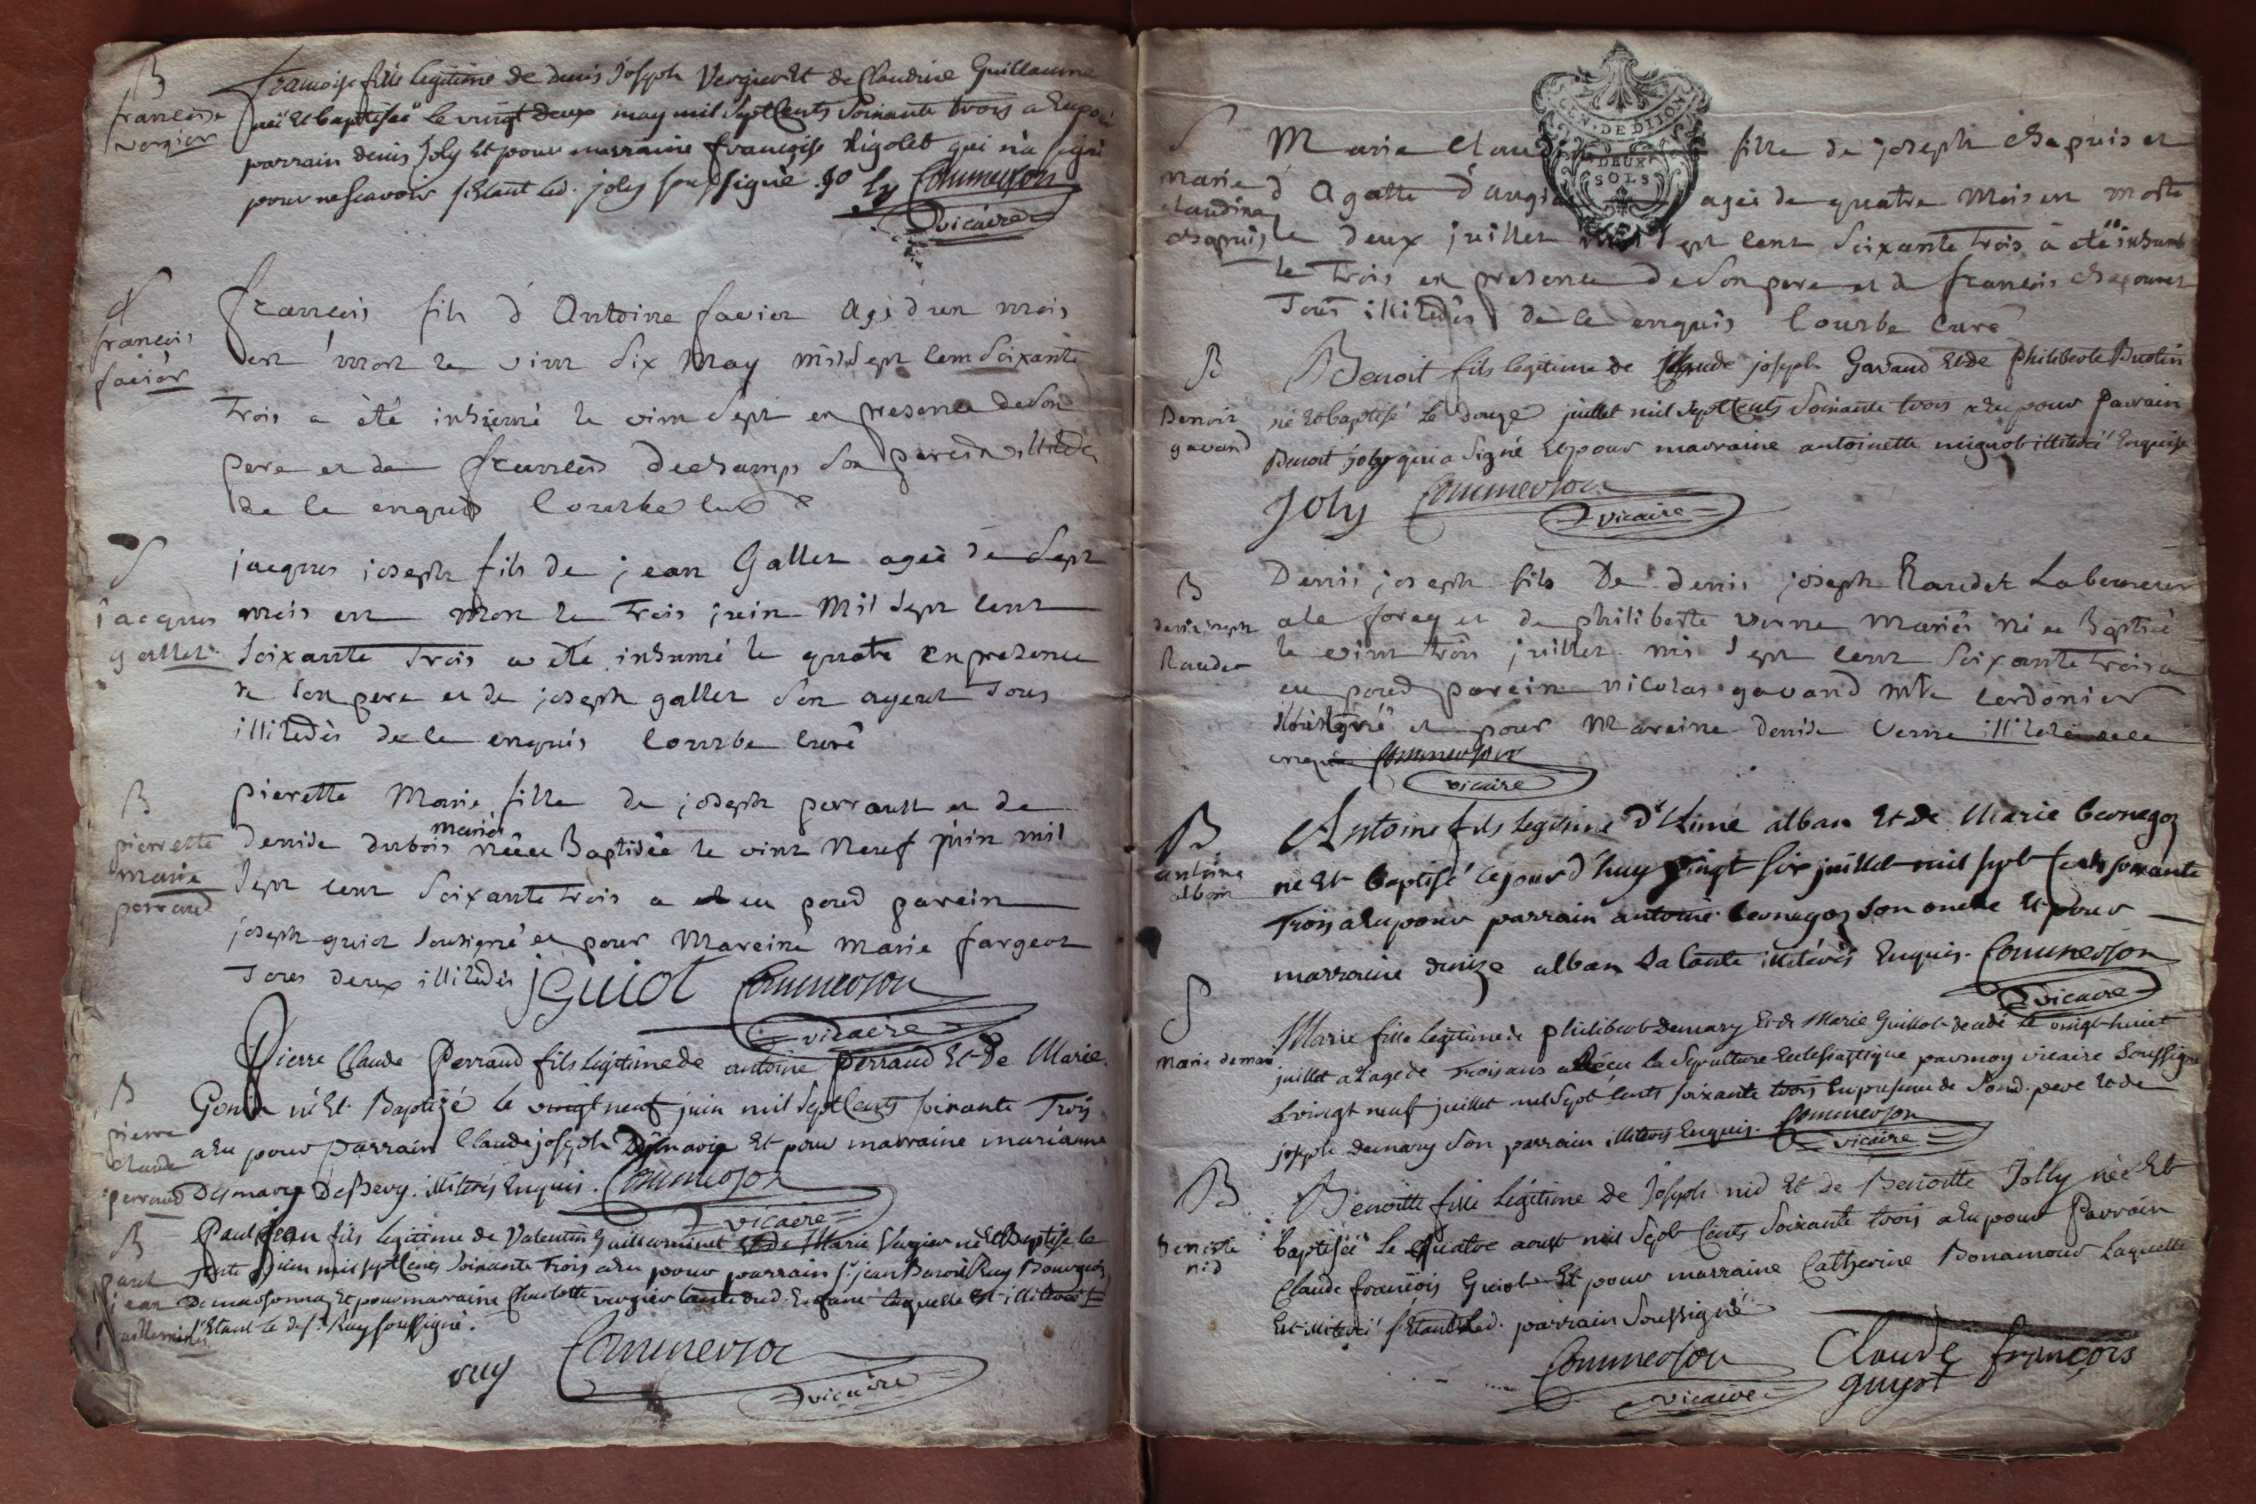 B
francoise
vergier
francoise fille legitime de denis Joseph Vergier Et de Claudine Guillaume
née Et baptisée le vingt deux may mil Sept Cents Soixante trois a Eu pour
parrain denis Joly Et pour marraine francoise rigolet qui n'a signé
pour ne scavoir sétant led. joly soussigné. Joly Commerson
vicaire
S
francois
favier
francois fils d'Antoine favier agé d'un mois
est mort le vint six may mil sept cent soixante
trois a été inhumé le vint sept en presence de son
pere et de francois dechamps son parein illitedés
de ce enquis Courbe curé
S
jacques
gallet
jacques joseph fils de jean Gallet agée de sept
mois est mort le trois juin mil sept cent
soixante trois a été inhumé le quatre en presence
de son pere et de joseph gallet son ayeul tous
illitedés de ce enquis Courbe curé
B
pierrette
marie
perraud
pierette Marie fille de joseph perrault et de
denise dubois mariés née et Baptisée le vint neuf juin mil
sept cent soixante trois a eu pour parein
joseph guiot sousigné et pour Mareine marie fargeot
tous deux illitedés jguiot Commerson
vicaire
B
pierre
claude
perraud
Pierre Claude Perraud fils legitime de antoine perraud Et de Marie
Gonin né Et Baptizé le vingt neuf juin mil Sept Cents soixante Trois
a Eu pour parrain Claude joseph Desmaris Et pour marraine marianne
Desmarys illiterés Enquis. Commerson
vicaire
B
paul
jean
guillerminet
Paul jean fils legitime de Valentin Guillerminet Et de Marie Vergier né Et Baptisé le
trente juin mil sept Cents Soixante Trois a Eu pour parrain Sr. jean Ruy Bourgeois
Et pour marraine Charlotte vergier tante dud. Enfant laquelle Est illiteré
s'Etant le des. Ruy soussigné.
ruy Commerson
vicaire
GEN. DE DIJON
DEUX
SOLS
S
marie
claudine
chapuis
Marie Claudine fille de joseph chapuis et
d'Agatte agée de quatre Mois est morte
le deux juillet mil sept cent soixante trois a été inhumé
le trois en presence de son pere et de francois
Tous illitedés de ce enquis Courbe curé
B
Benoit
gavand
Benoit fils legitime de Claude joseph Gavand Et de Philiberte Buotin
né Et baptisé le douze juillet mil Sept Cents Soixante trois a Eu pour Parrain
Benoit joly qui a Signé Et pour marraine antoinette mignot illiteré Enquise
Joly Commerson
vicaire
B
denis joseph
Raudet
Denis joseph fils De denis joseph Raudet Laboureur
a la foret et de philiberte verne mariés né et Baptisé
le vint trois juillet mil sept cent soixante trois a
eu pour parein nicolas gavand mtre cordonier
sousigné et pour Mareine denise verne illiterée de ce
enquis Commerson
vicaire
B
antoine
alban
Antoine fils legitime d'Aimé alban Et de Marie bernegoz
né Et baptisé cejourd'huy vingt six juillet mil sept Cents soixante
trois a Eu pour parrain antoine bernegoz son oncle Et pour
marraine denize alban sa tante illiterés Enquis. Commerson
vicaire
S
Marie demari
Marie fille legitime de philibert demary Et de Marie Guillot decedé le vingt huict
juillet a l'age de trois ans a Recu la Sepulture Ecclesiastique par moy vicaire Soussigné
le vingt neuf juillet mil Sept Cents soixante trois En presence de Sond. pere Et de
joseph demary son parrain illiterés Enquis. Commerson
vicaire
B
Benoite
nid
Benoitte fille Légitime de Joseph nid Et de Benoitte Jolly née Et
baptisée Le quatre aoust mil Sept Cents Soixante trois a Eu pour Parrain
Claude françois Guiot Et pour marraine Catherine Bonamour Laquelle
Est illiteré s'Etant Led. parrain Soussigné
Commerson Claude françois
vicaire guyot